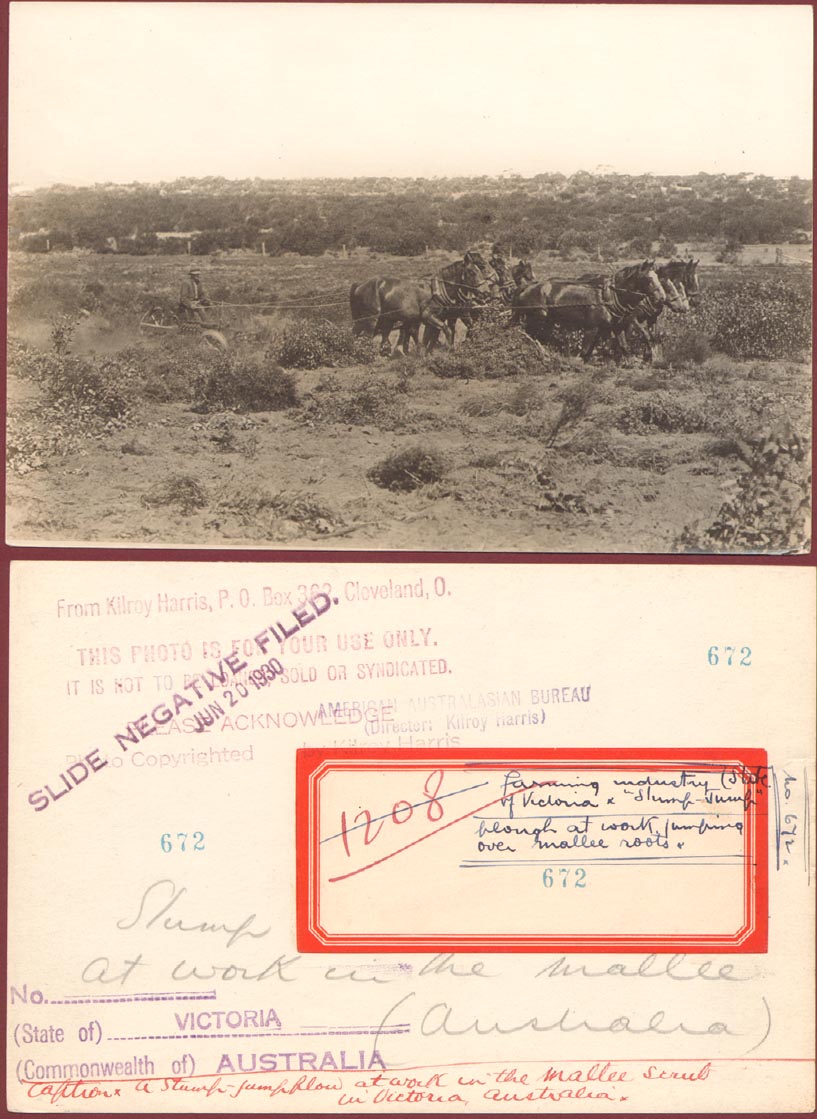 From Kilroy Harris, P. O. Box 362, Cleveland, O.
THIS PHOTO IS FOR YOUR USE ONLY.
IT IS NOT TO BE LOANED, SOLD OR SYNDICATED.
PLEASE ACKNOWLEDGE
Photo Copyrighted by Kilroy Harris
SLIDE NEGATIVE FILED.
JUN 20 1930
AMERICAN AUSTRALASIAN BUREAU
(Director: Kilroy Harris)
672
1208
farming industry (State
of Victoria x "Stump-Jump"
plough at work, jumping
over mallee roots x
672
No. 672 x
672
Stump
at work in the mallee
(Australia)
No.
(State of) VICTORIA
(Commonwealth of) AUSTRALIA
Caption x A Stump-jump plow at work in the Mallee Scrub
in Victoria, Australia x